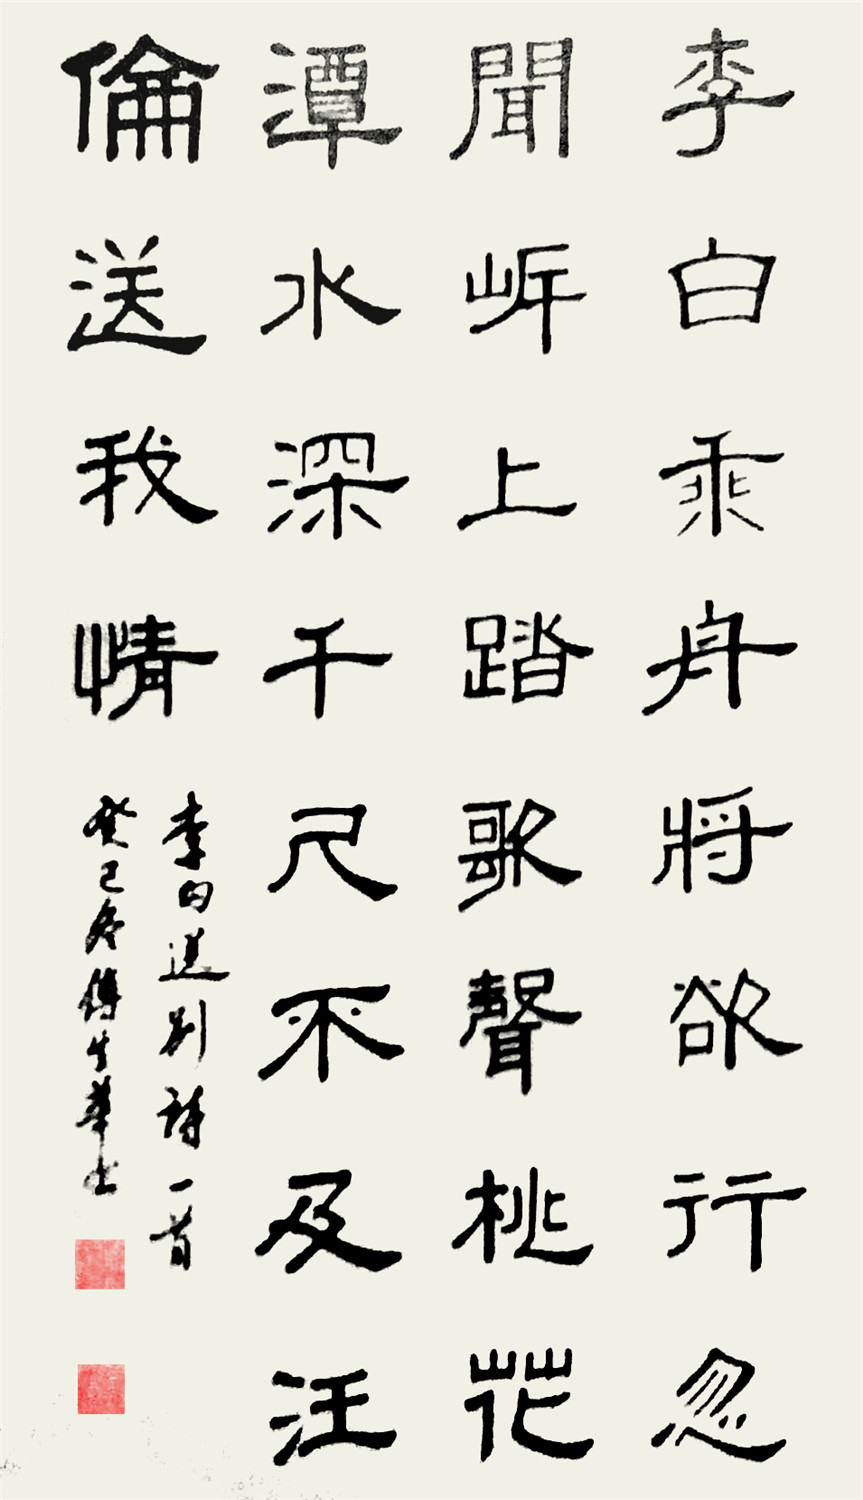 李白乘舟將欲行忽
聞岸上踏歌聲桃花
潭水深千尺不及汪
倫送我情
李白送别詩一首
癸巳冬傅生華书